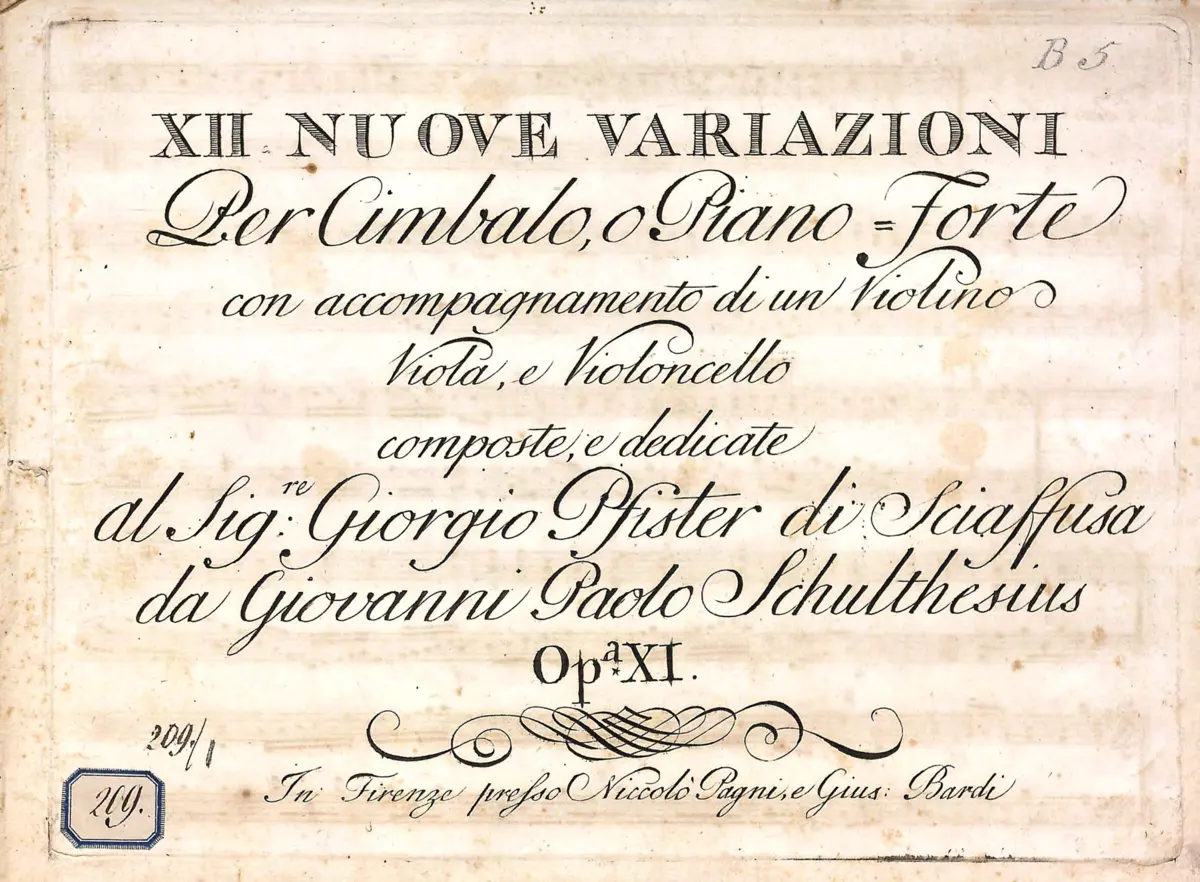 B 5
XII NUOVE VARIAZIONI
Per Cimbalo, o Piano = Forte
con accompagnamento di un Violino
Viola, e Violoncello
composte, e dedicate
al Sig:re Giorgio Pfister di Sciaffusa
da Giovanni Paolo Schulthesius
Opa XI.
209/1
209.
In Firenze presso Niccolò Pagni, e Gius: Bardi